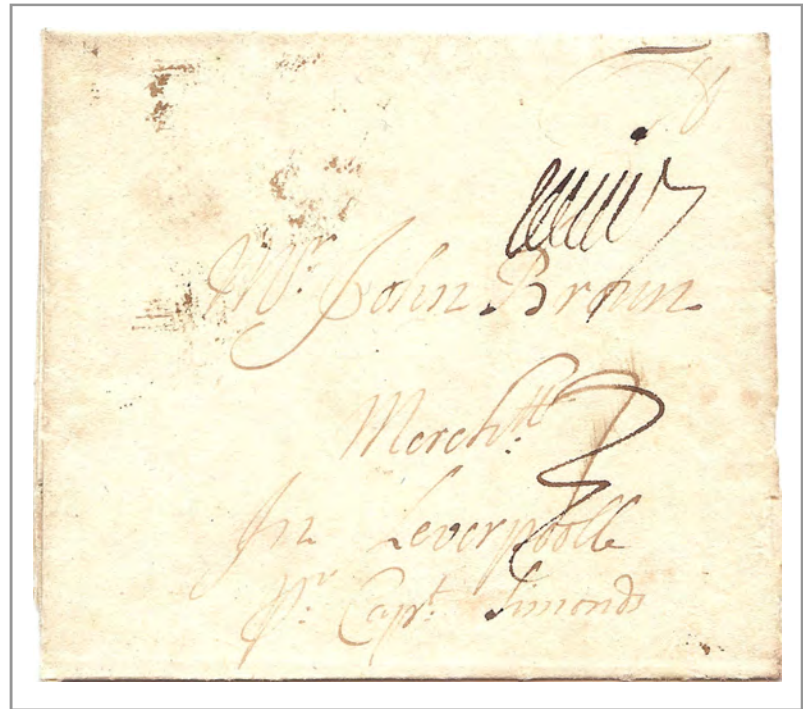 To
Mr. John Brown
Mercht.
In Leverpoolle
Pr. Capt. Simonds